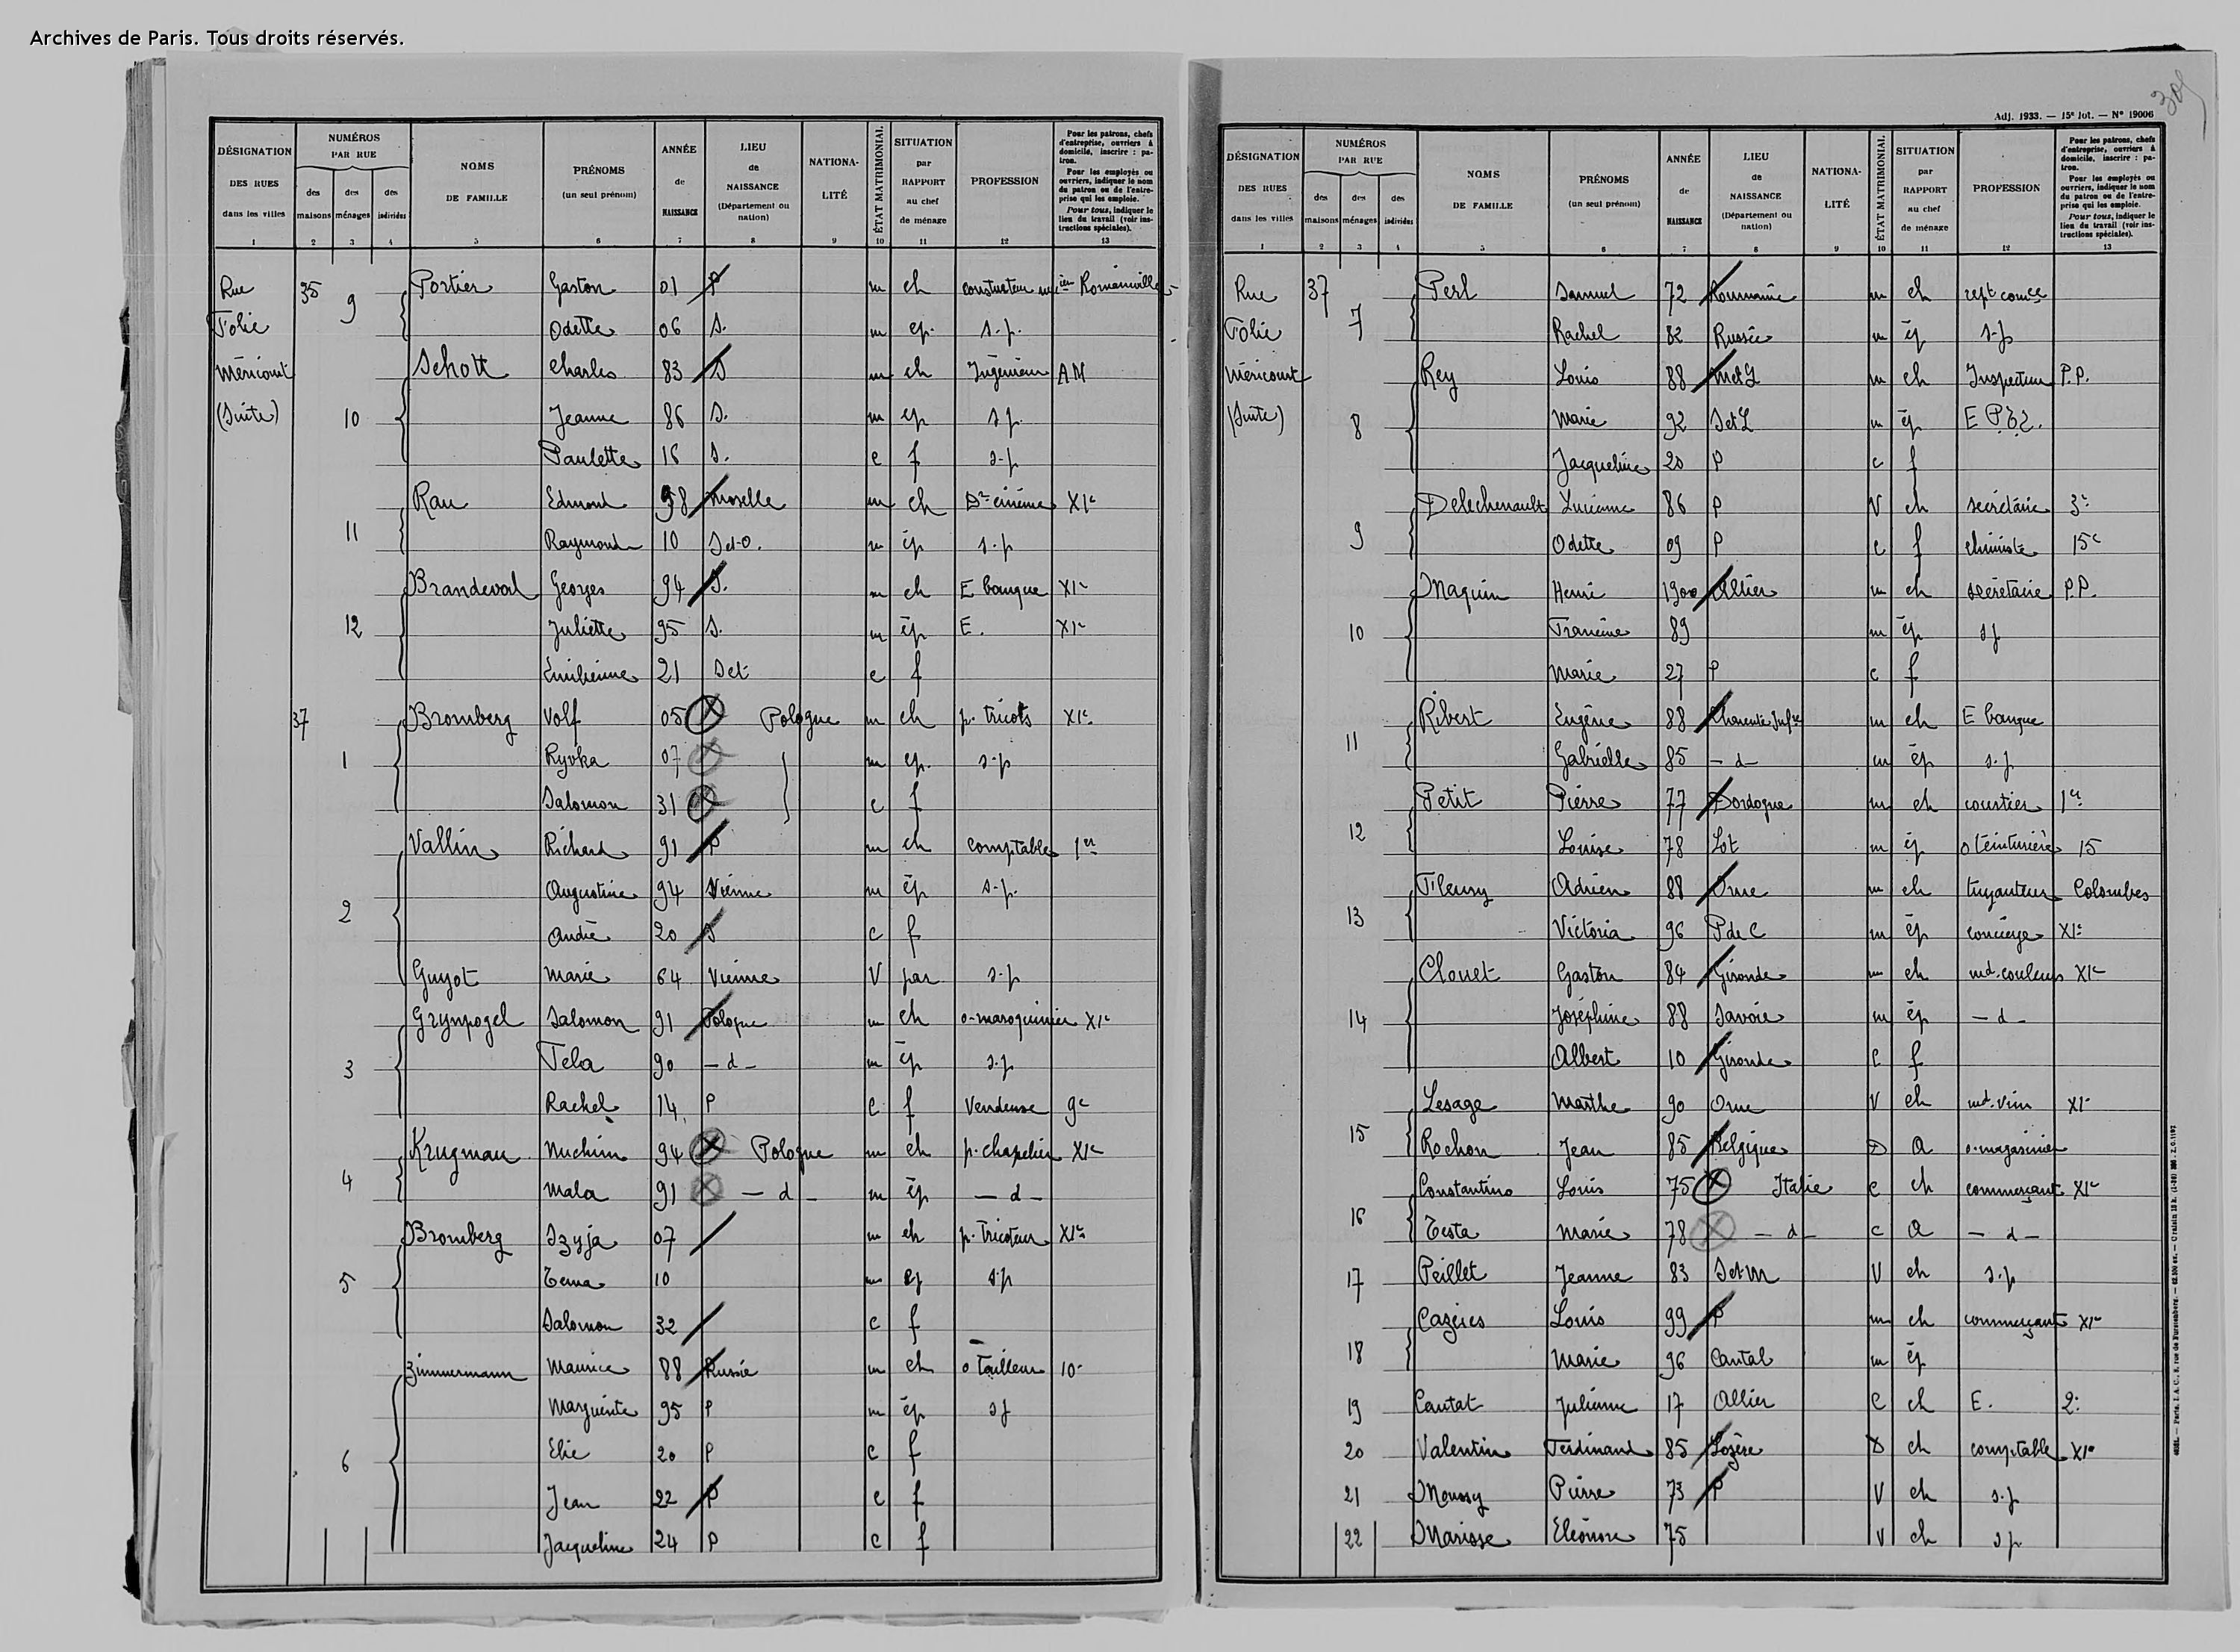 Archives de Paris. Tous droits réservés.
DÉSIGNATION DES RUES dans les villes 1
NUMÉROS PAR RUE des maisons 2 des ménages 3 des individus 4
NOMS DE FAMILLE 5
PRÉNOMS (un seul prénom) 6
ANNÉE de NAISSANCE 7
LIEU de NAISSANCE (Département ou nation) 8
NATIONALITÉ 9
ÉTAT MATRIMONIAL 10
SITUATION par RAPPORT au chef de ménage 11
PROFESSION 12
Pour les patrons, chefs d'entreprise, ouvriers à domicile, inscrire : patron.
Pour les employés ou ouvriers, indiquer le nom du patron ou de l'entreprise qui les emploie.
Pour tous, indiquer le lieu du travail (voir instructions spéciales). 13
Rue 35 9 Portier Gaston 01 P m ch Romainville
Folie Odette 06 S. m ep. s.p.
Méricourt Schott Charles 83 S m ch Ingénieur AM
(Suite) 10 Jeanne 86 S. m ep s.p.
Paulette 16 S. c f s.p
11 Rau Edmond 98 Moselle m ch Dr cinéma XIe
Raymonde 10 S et O. m ép s.p
Brandeval Georges 94 S. m ch E banque XIe
12 Juliette 95 S. m ép E. XIe
Emilienne 21 Set c f
37 Bromberg Volf 05 Pologne m ch p. tricots XIe
1 Ryvka 07 m ep. s.p
Salomon 31 c f
Vallin Richard 91 P m ch comptable 1er
Augustine 94 Vienne m ép s.p.
2 André 20 S c f
Guyot Marie 64 Vienne V par s.p
Grynpogel Salomon 91 Pologne m ch o-maroquinier XIe
3 Tela 90 - d - m ép s.p
Rachel 14 P c f Vendeuse 9e
Krugman Nuchim 94 Pologne m ch p. chapelier XIe
4 Mala 91 - d - m ép - d -
Bromberg Szyja 07 m ch p. tricoteur XIe
5 Tema 10 m ep s.p
Salomon 32 c f
Zimmermann Maurice 88 Russie m ch o tailleur 10e
Marguerite 95 P m ép s.p
Elie 20 P c f
6 Jean 22 P c f
Jacqueline 24 P c f
Adj. 1933. — 15e lot. — N° 19006
DÉSIGNATION DES RUES dans les villes 1
NUMÉROS PAR RUE des maisons 2 des ménages 3 des individus 4
NOMS DE FAMILLE 5
PRÉNOMS (un seul prénom) 6
ANNÉE de NAISSANCE 7
LIEU de NAISSANCE (Département ou nation) 8
NATIONALITÉ 9
ÉTAT MATRIMONIAL 10
SITUATION par RAPPORT au chef de ménage 11
PROFESSION 12
Pour les patrons, chefs d'entreprise, ouvriers à domicile, inscrire : patron.
Pour les employés ou ouvriers, indiquer le nom du patron ou de l'entreprise qui les emploie.
Pour tous, indiquer le lieu du travail (voir instructions spéciales). 13
Rue 37 Perl Samuel 72 Roumanie m ch rept comce
Folie 7 Rachel 82 Russie m ép s.p
Méricourt Rey Louis 88 M et L m ch Inspecteur P.P.
(Suite) 8 Marie 92 S et L m ép E
Jacqueline 20 P c f
Delechenault Lucienne 86 P V ch secrétaire 3e
9 Odette 09 P c f chimiste 15e
Maquin Henri 1900 Allier m ch secrétaire P.P.
10 Francine 89 m ép s.p
Marie 27 P c f
Ribert Eugène 88 Charente Infre m ch E banque
11 Gabrielle 85 - d - m ép s.p
Petit Pierre 77 Dordogne m ch courtier 1er
12 Louise 78 Lot m ép o teinturière 15
Fleury Adrien 88 Orne m ch tuyauteur Colombes
13 Victoria 96 P de C m ép concierge XIe
Clouet Gaston 84 Gironde m ch md. couleurs XIe
14 Joséphine 88 Savoie m ép - d -
Albert 10 Gironde c f
Lesage Marthe 90 Orne V ch md. vin XIe
15 Rochon Jean 85 Belgique D a o-magasinier
Constantino Louis 75 Italie c ch commerçant XIe
16 Testa Marie 78 - d - c a - d -
17 Peillet Jeanne 83 S et M V ch s.p
Cazères Louis 99 P m ch commerçant XIe
18 Marie 96 Cantal m ép
19 Cantat Julienne 17 Allier C ch E. 2e
20 Valentin Ferdinand 85 Lozère D ch comptable XIe
21 Moussy Pierre 73 P V ch s.p
22 Marisse Eléonore 75 V ch s.p